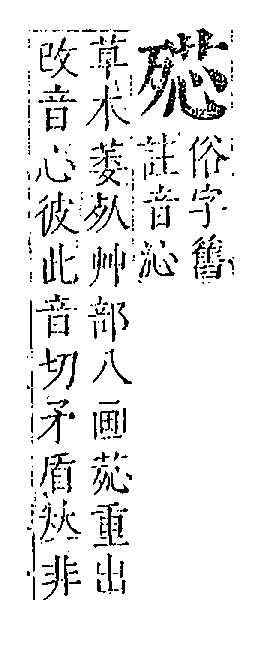 俗字舊
註音沁
草木萎艸部八画重出
改音心彼此音切矛盾非